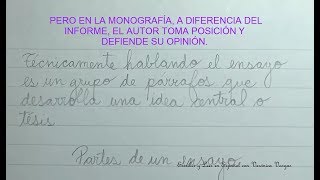 PERO EN LA MONOGRAFÍA, A DIFERENCIA DEL
INFORME, EL AUTOR TOMA POSICIÓN Y
DEFIENDE SU OPINIÓN.
Técnicamente hablando el ensayo
es un grupo de párrafos que
desarrolla una idea central o
tésis.
Partes de un ensayo
Escribir y Leer en Español con Verónica Vargas